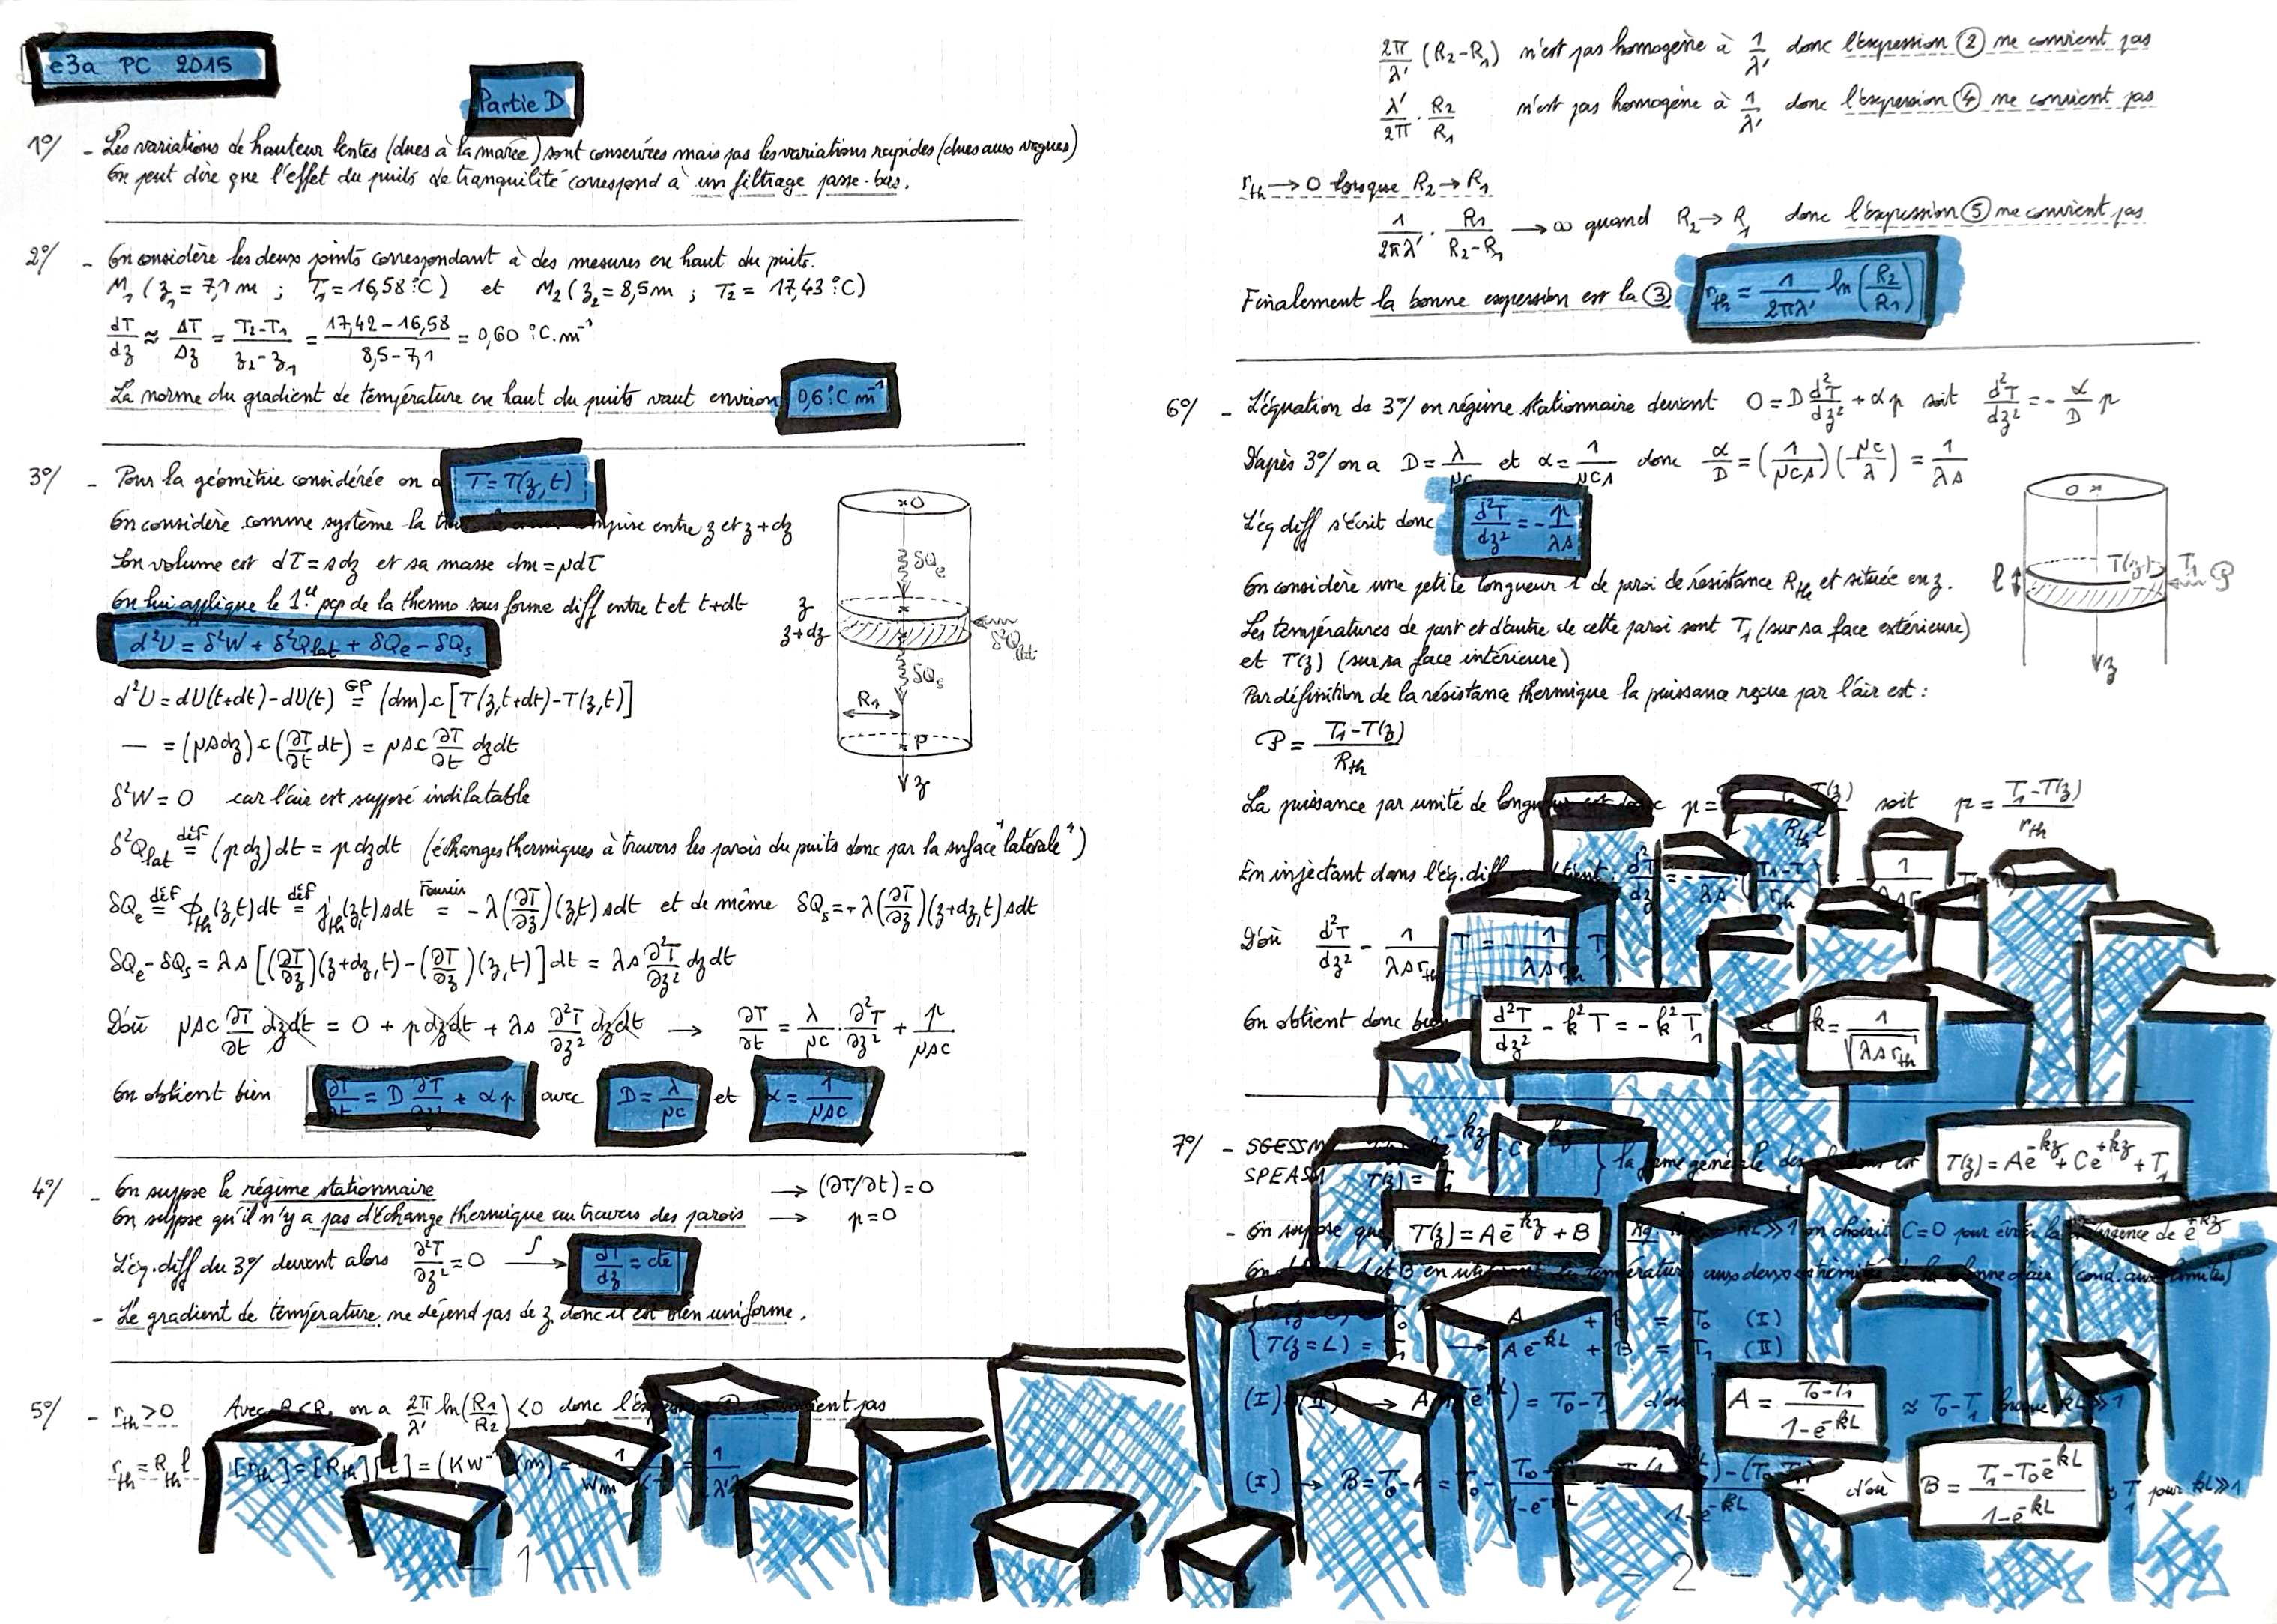 e3a PC 2015
Partie D
1°/ - Les variations de hauteur lentes (dues à la marée) sont conservées mais pas les variations rapides (dues aux vagues)
On peut dire que l'effet du puits de tranquilité correspond à un filtrage passe-bas.
2°/ - On considère les deux points correspondant à des mesures en haut du puits.
M₁ (z₁ = 7,1 m ; T₁ = 16,58 °C) et M₂ (z₂ = 8,5 m ; T₂ = 17,43 °C)
dT/dz ≈ ΔT/Δz = (T₂-T₁)/(z₂-z₁) = (17,42-16,58)/(8,5-7,1) = 0,60 °C.m⁻¹
La norme du gradient de température en haut du puits vaut environ 0,6 °C m⁻¹
3°/ - Pour la géométrie considérée on a T = T(z,t)
On considère comme système la comprise entre z et z+dz
Son volume est dτ = sdz et sa masse dm = μdτ
On lui applique le 1er pcp de la thermo sous forme diff entre t et t+dt
d²U = δ²W + δ²Qlat + δQe - δQs
d²U = dU(t+dt) - dU(t) =(GP) (dm)c [T(z,t+dt) - T(z,t)]
— = (μsdz) c (∂T/∂t dt) = μsc ∂T/∂t dzdt
δ²W = 0 car l'air est supposé indilatable
δ²Qlat =(déf) (pdz)dt = p dzdt (échanges thermiques à travers les parois du puits donc par la surface "latérale")
δQe =(déf) ϕth(z,t)dt =(déf) jth(z,t)sdt =(Fourier) -λ(∂T/∂z)(z,t) sdt et de même δQs = -λ(∂T/∂z)(z+dz,t) sdt
δQe - δQs = λs [(∂T/∂z)(z+dz,t) - (∂T/∂z)(z,t)] dt = λs ∂²T/∂z² dzdt
D'où μsc ∂T/∂t dzdt = 0 + p dzdt + λs ∂²T/∂z² dzdt → ∂T/∂t = λ/μc · ∂²T/∂z² + p/μsc
On obtient bien ∂T/∂t = D ∂²T/∂z² + αp avec D = λ/μc et α = 1/μsc
O
δQe
z
z+dz
δ²Qlat
δQs
R₁
P
z
4°/ - On suppose le régime stationnaire → (∂T/∂t) = 0
On suppose qu'il n'y a pas d'échange thermique au travers des parois → p = 0
L'éq. diff du 3°/ devient alors ∂²T/∂z² = 0 ∫→ dT/dz = cte
- Le gradient de température ne dépend pas de z donc il est bien uniforme.
5°/ - rth > 0 Avec on a 2π/λ' ln(R₁/R₂) < 0 donc pas
rth = Rth l [rth] = [Rth][l] = (KW⁻¹)(m) =
- 1 -
2π/λ' (R₂-R₁) n'est pas homogène à 1/λ' donc l'expression ② ne convient pas
λ'/2π · R₂/R₁ n'est pas homogène à 1/λ' donc l'expression ④ ne convient pas
rth → 0 lorsque R₂ → R₁
1/2πλ' · R₁/(R₂-R₁) → ∞ quand R₂ → R₁ donc l'expression ⑤ ne convient pas
Finalement la bonne expression est la ③ rth = 1/2πλ' ln(R₂/R₁)
6°/ - L'équation de 3°/ en régime stationnaire devient 0 = D d²T/dz² + αp soit d²T/dz² = - α/D p
D'après 3°/ on a D = λ/μc et α = 1/μcs donc α/D = (1/μcs)(μc/λ) = 1/λs
L'éq diff s'écrit donc d²T/dz² = - p/λs
On considère une petite longueur l de paroi de résistance Rth et située en z.
Les températures de part et d'autre de cette paroi sont T₁ (sur sa face extérieure)
et T(z) (sur sa face intérieure)
Par définition de la résistance thermique la puissance reçue par l'air est :
P = (T₁-T(z))/Rth
O
l
T(z)
T₁
P
z
La puissance par unité de longueur est donc p = soit p = (T₁-T(z))/rth
En injectant dans l'éq. diff
D'où d²T/dz² - 1/λsrth T = - 1/λsrth T₁
On obtient donc bien d²T/dz² - k²T = -k²T₁ k = 1/√(λsrth)
7°/ - SGESSM
SPEASM T(z) = T₁ la forme générale des est T(z) = Ae⁻ᵏᶻ + Ce⁺ᵏᶻ + T₁
- On suppose que T(z) = Ae⁻ᵏᶻ + B kL ≫ 1 on choisit C = 0 pour éviter la divergence de e⁺ᵏᶻ
On obtient A et B en utilisant les températures aux deux extrémités de la colonne d'air (cond. aux limites)
T₀ A + B = T₀ (I)
T(z=L) = T₁ → Ae⁻ᵏᴸ + B = T₁ (II)
(I) - (II) → = T₀-T₁ d'où A = (T₀-T₁)/(1-e⁻ᵏᴸ) ≈ T₀-T₁ lorsque kL ≫ 1
(I) → B = T₀-A = d'où B = (T₁-T₀e⁻ᵏᴸ)/(1-e⁻ᵏᴸ) ≈ T₁ pour kL ≫ 1
- 2 -